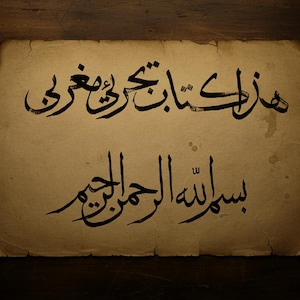 هذا كتاب مغربي
بسم الله الرحمن الرحيم